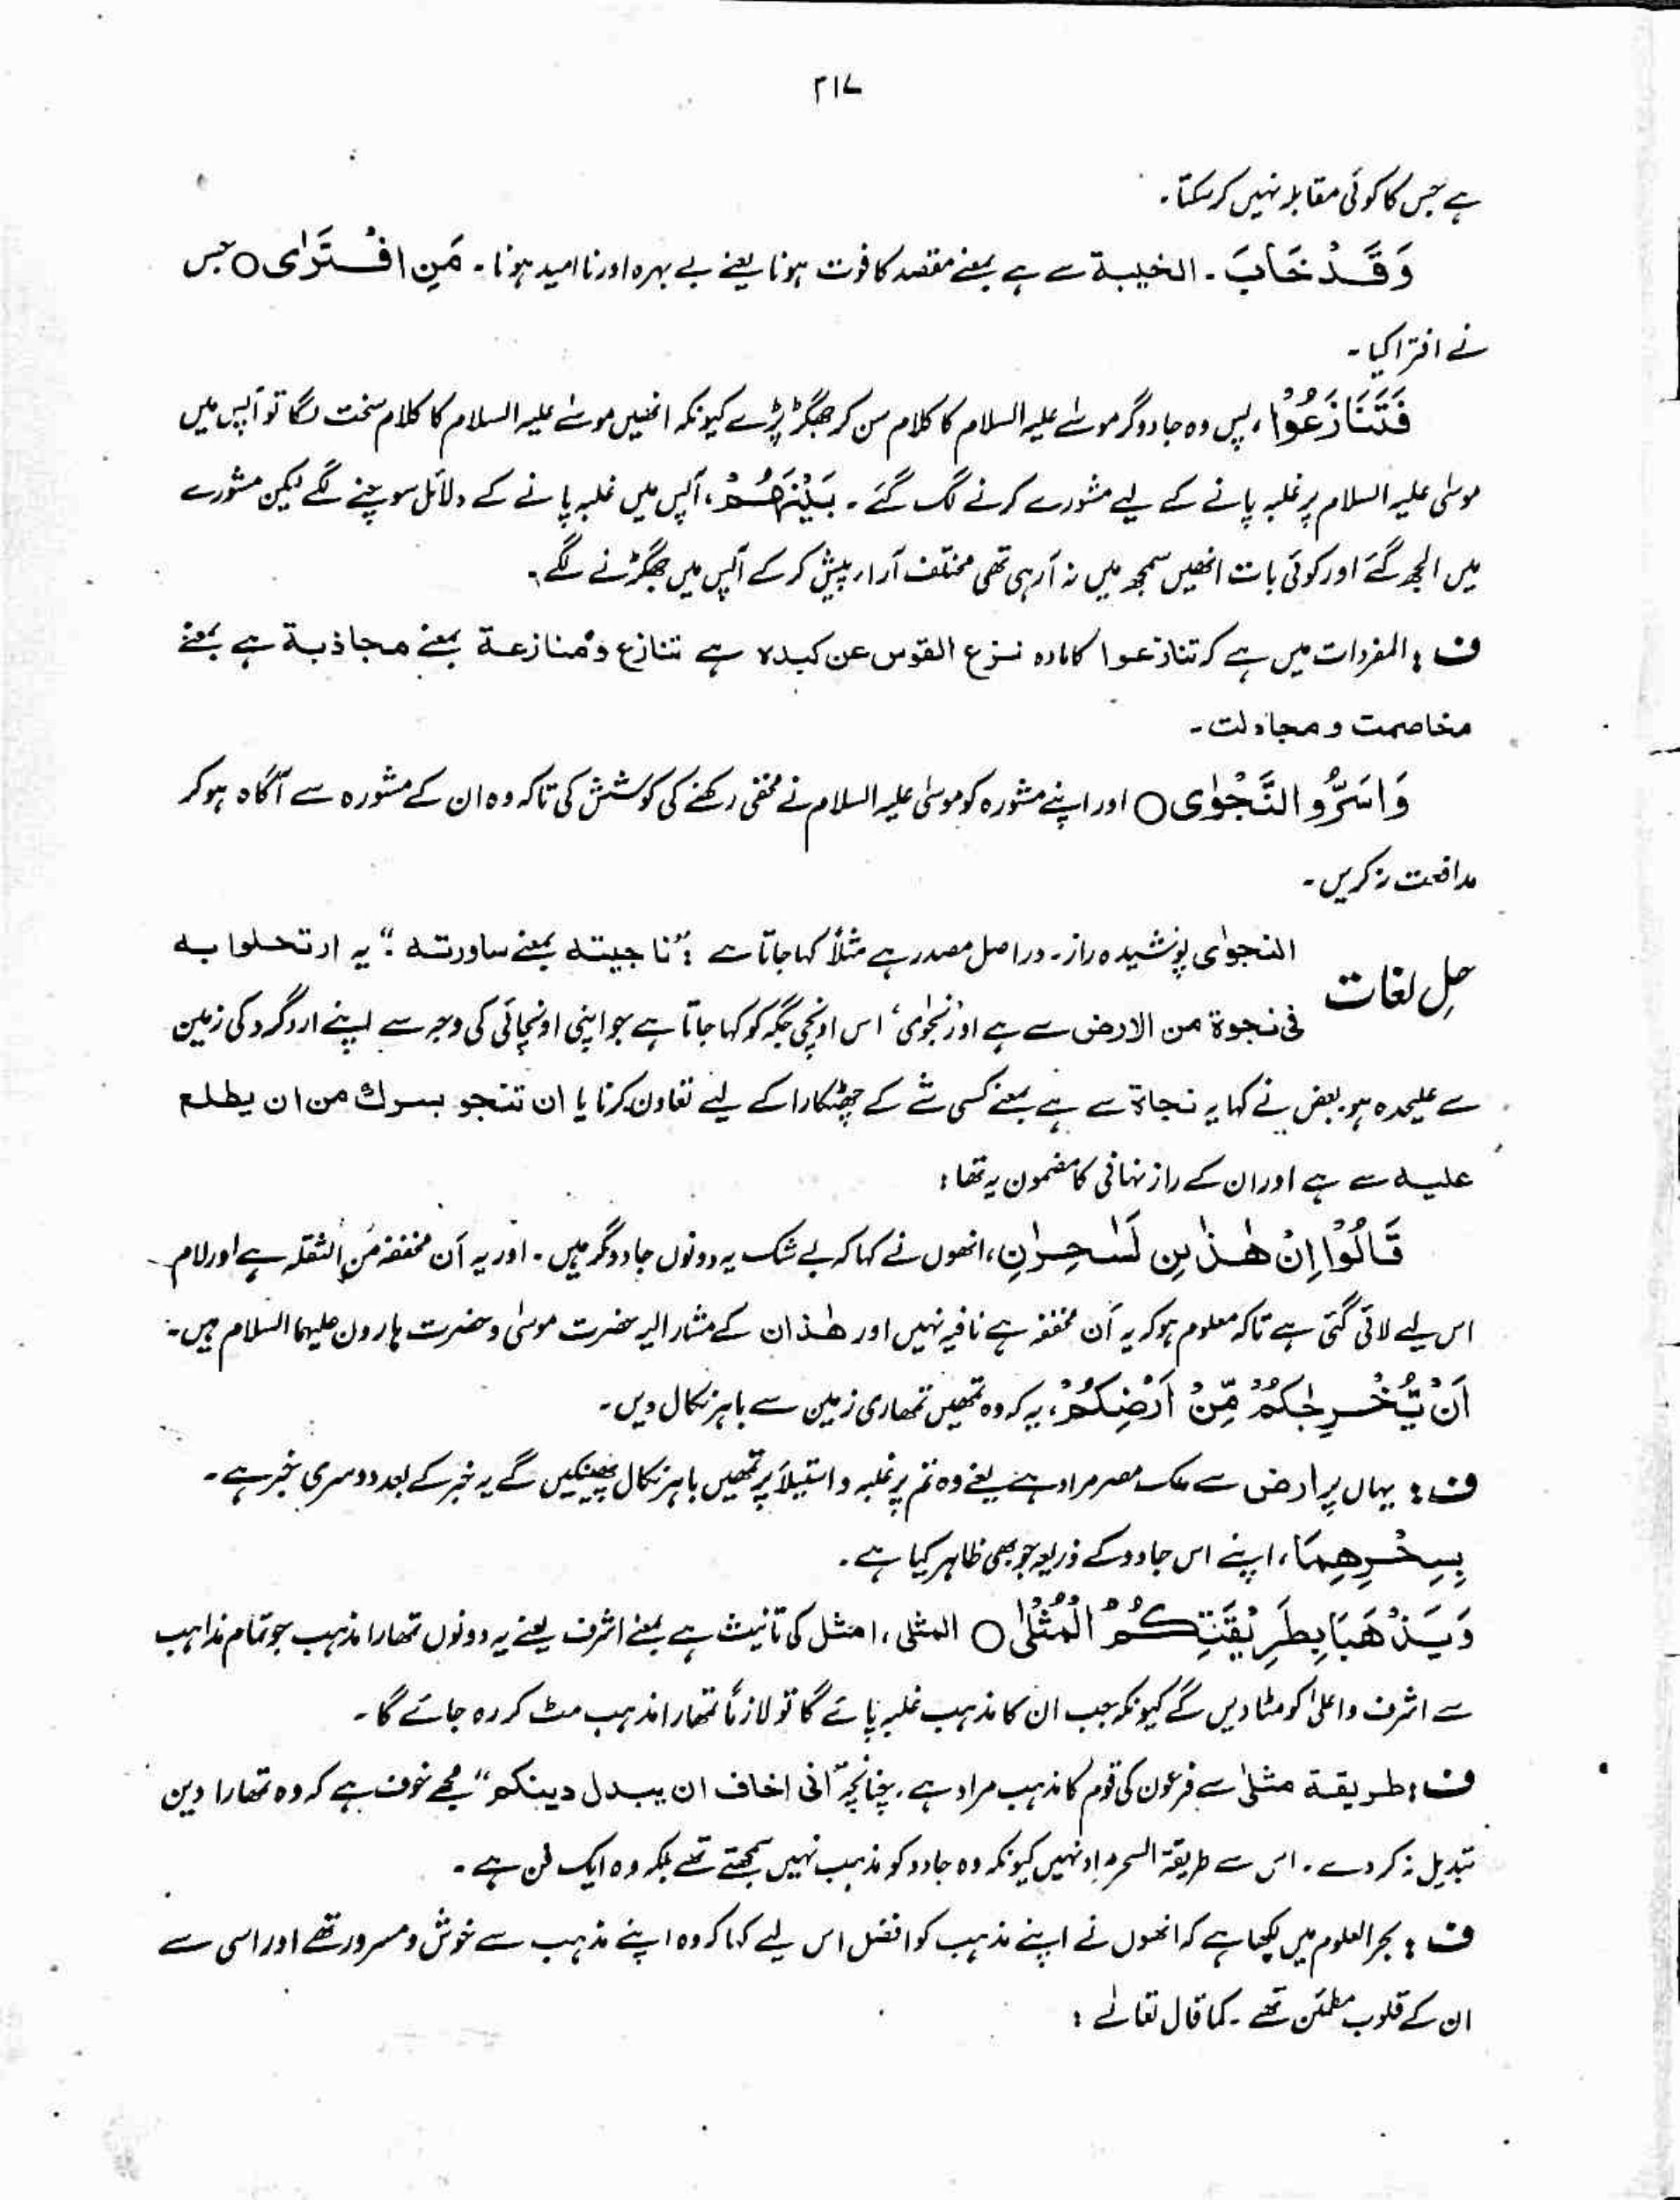 ۲۱۷
ہے جس کا کوئی مقابلہ نہیں کرسکتا۔
وَقَدْ خَابَ۔ الخیبۃ سے ہے بمعنے مقصد کا فوت ہونا یعنے بے بہرہ اور ناامید ہونا۔ مَنِ افْتَرٰی○ جس
نے افترا کیا۔
فَتَنَازَعُوْا، پس وہ جادوگر موسٰے علیہ السلام کا کلام سن کر جھگڑ پڑے کیونکہ انھیں موسٰے علیہ السلام کا کلام سخت لگا تو آپس میں
موسٰی علیہ السلام پر غلبہ پانے کے لیے مشورے کرنے لگ گئے۔ بَیْنَہُمْ، آپس میں غلبہ پانے کے دلائل سوچنے لگے لیکن مشورے
میں الجھ گئے اور کوئی بات انھیں سمجھ میں نہ آرہی تھی مختلف آراء پیش کرکے آپس میں جھگڑنے لگے۔
ف : المفردات میں ہے کہ تنازعوا کا مادہ نزع القوس عن کبدہ ہے تنازع ومنازعۃ بمعنے مجاذبۃ ہے بمعنے
مخاصمت و مجادلت۔
وَاَسَرُّو النَّجْوٰی○ اور اپنے مشورہ کو موسٰی علیہ السلام نے مخفی رکھنے کی کوشش کی تاکہ وہ ان کے مشورہ سے آگاہ ہوکر
مدافعت نہ کریں۔
حلِ لغات النجوٰی پوشیدہ راز۔ دراصل مصدر ہے مثلاً کہا جاتا ہے : "ناجیتہ بمعنے ساورتہ :" یہ ارتحلوا بہ
فی نجوۃ من الارض سے ہے اور 'نجوٰی' اس اونچی جگہ کو کہا جاتا ہے جو اپنی اونچائی کی وجہ سے اپنے اردگرد کی زمین
سے علیحدہ ہو۔ بعض نے کہا یہ نجاۃ سے ہے بمعنے کسی شے کے چھٹکارا کے لیے تعاون کرنا یا ان تنجو بسرك من ان یطلع
علیہ سے ہے اور ان کے راز نہانی کا مضمون یہ تھا :
قَالُوْا اِنْ ھٰذٰنِ لَسٰحِرٰنِ، انھوں نے کہا کہ بے شک یہ دونوں جادوگر ہیں۔ اور یہ اَن مخففہ مِن الثقلہ ہے اور لام
اس لیے لائی گئی ہے تاکہ معلوم ہو کہ یہ اَن مخففہ ہے نافیہ نہیں اور ھٰذان کے مشارالیہ حضرت موسٰی وحضرت ہارون علیہما السلام ہیں۔
اَنْ یُّخْرِجٰکُمْ مِّنْ اَرْضِکُمْ، یہ کہ وہ تمھیں تمھاری زمین سے باہر نکال دیں۔
ف : یہاں پر ارض سے ملک مصر مراد ہے یعنے وہ تم پر غلبہ و استیلاَ پر تمھیں باہر نکال پھینکیں گے یہ خبر کے بعد دوسری خبر ہے۔
بِسِحْرِھِمَا، اپنے اس جادو کے ذریعہ جو بھی ظاہر کیا ہے۔
وَیَذْھَبَا بِطَرِیْقَتِکُمُ الْمُثْلٰی○ المثلی، امثل کی تانیث ہے بمعنے اشرف یعنے یہ دونوں تمھارا مذہب جو تمام مذاہب
سے اشرف و اعلٰی کو مٹا دیں گے کیونکہ جب ان کا مذہب غلبہ پائے گا تو لازماً تمھارا مذہب مٹ کر رہ جائے گا۔
ف : طریقۃ مثلٰی سے فرعون کی قوم کا مذہب مراد ہے۔ چنانچہ "انی اخاف ان یبدل دینکم" مجھے خوف ہے کہ وہ تمھارا دین
تبدیل نہ کردے۔ اس سے طریقۃ السحر مراد نہیں کیونکہ وہ جادو کو مذہب نہیں سمجھتے تھے بلکہ وہ ایک فن ہے۔
ف : بحر العلوم میں لکھا ہے کہ انھوں نے اپنے مذہب کو افضل اس لیے کہا کہ وہ اپنے مذہب سے خوش و مسرور تھے اور اسی سے
ان کے قلوب مطمئن تھے۔ کما قال تعالٰے :